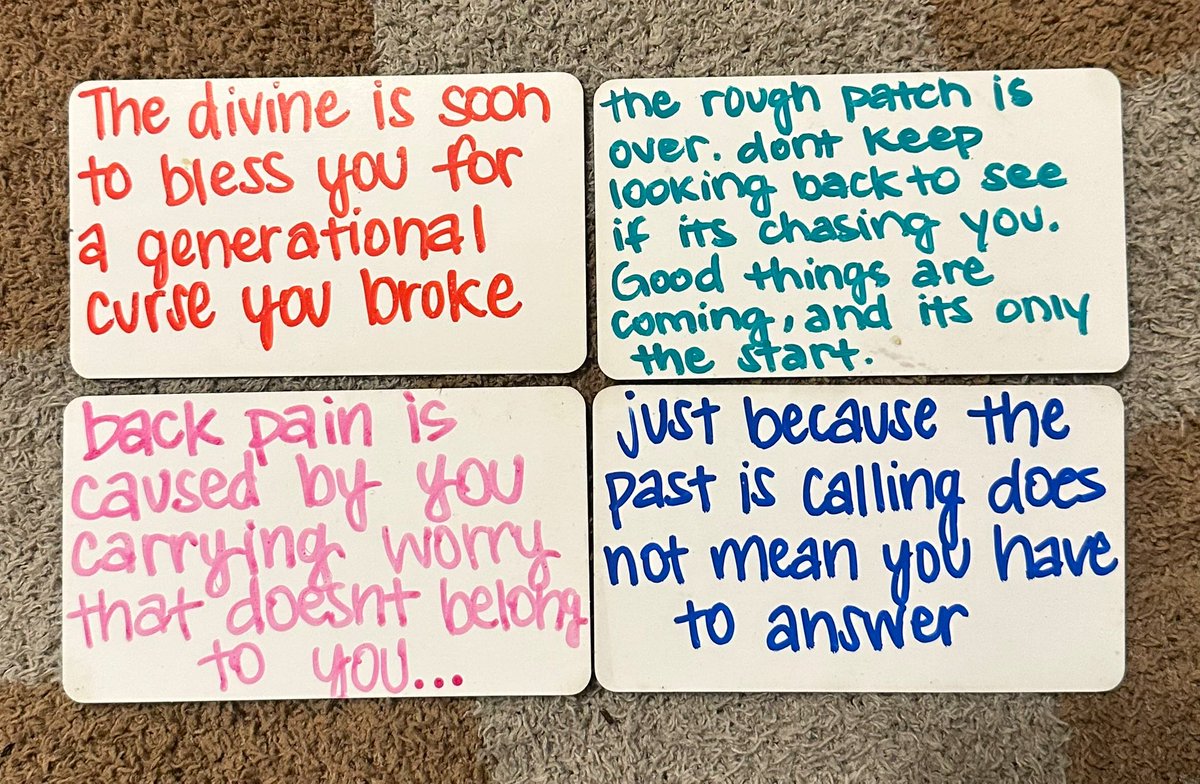 The divine is soon
to bless you for
a generational
curse you broke
the rough patch is
over. dont keep
looking back to see
if its chasing you.
Good things are
coming, and its only
the start.
back pain is
caused by you
carrying worry
that doesnt belong
to you...
just because the
past is calling does
not mean you have
to answer